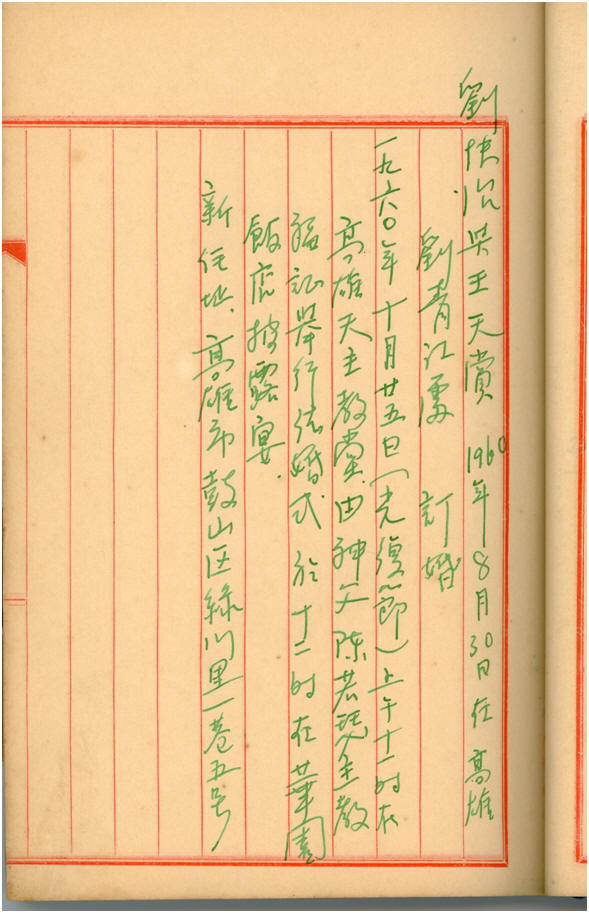 劉快治與王天賞 1960年8月30日在高雄
劉青江處 訂婚
一九六〇年十月廿五日(光復節)上午十一時在
高雄天主教堂由神父陳若瑟主教
福証舉行結婚式 於十二時在華園
飯店披露宴.
新住址.高雄市鼓山区綠川里一巷五号